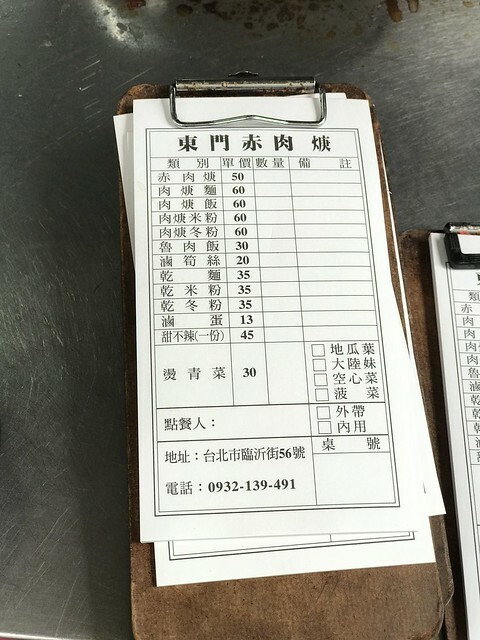 東門赤肉焿
類別 單價 數量 備註
赤肉焿 50
肉焿麵 60
肉焿飯 60
肉焿米粉 60
肉焿冬粉 60
魯肉飯 30
滷筍絲 20
乾麵 35
乾米粉 35
乾冬粉 35
滷蛋 13
甜不辣(一份) 45
燙青菜 30
□ 地瓜葉
□ 大陸妹
□ 空心菜
□ 菠菜
點餐人：
□ 外帶
□ 內用
桌號
地址：台北市臨沂街56號
電話：0932-139-491
類
赤
肉
肉
肉
肉
魯
滷
乾
乾
乾
滷